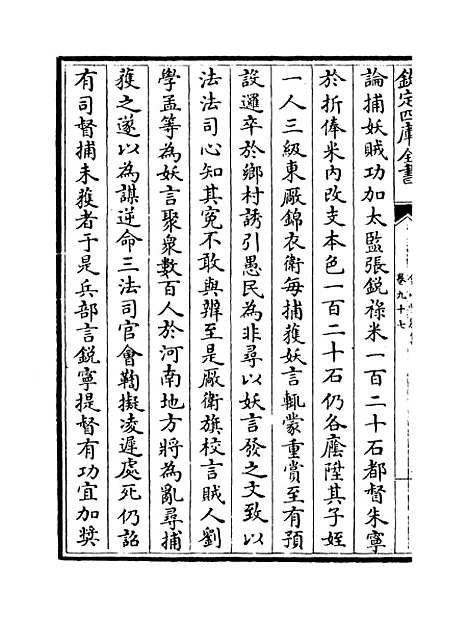 欽定四庫全書
卷九十七
論捕妖賊功加太監張銳祿米一百二十石都督朱寧
於折俸米內改支本色一百二十石仍各廕陞其子姪
一人三級東厰錦衣衛每捕獲妖言輒蒙重賞至有預
設邏卒於鄉村誘引愚民為非尋以妖言發之文致以
法法司心知其寃不敢與辨至是厰衛旗校言賊人劉
學孟等為妖言聚衆數百人於河南地方將為亂尋捕
獲之遂以為謀逆命三法司官會鞫擬凌遲處死仍詔
有司督捕未獲者于是兵部言銳寧提督有功宜加奖